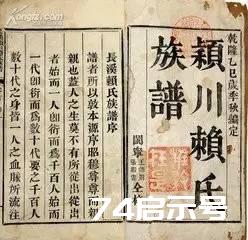 乾隆乙巳歲季秋編定
穎川賴氏
族譜
長溪賴氏族譜序
譜者所以敦本源序昭穆尊尊而親
親也蓋人之生莫不有所從出從出
者始而一人卽衍而爲千百人始而
一代卽衍而爲數十代要之千百人
數十代之身皆一人之血脈所流注
74启示号